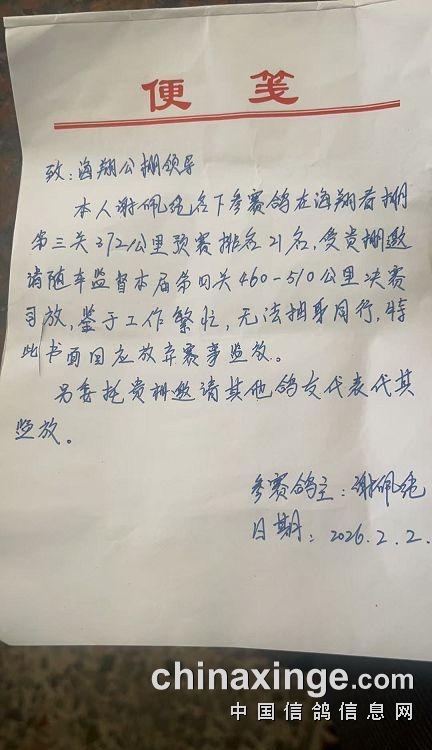 便 笺
致：海翔公棚领导
本人谢佩纯名下参赛鸽在海翔春棚
第三关372公里预赛排名21名，受贵棚邀
请随车监督本届第四关460-510公里决赛
司放，鉴于工作繁忙，无法抽身同行，特
此书面回应放弃赛事监放。
另委托贵棚邀请其他鸽友代表代其
监放。
参赛鸽主：谢佩纯
日期：2026.2.2.
chinaxinge.com
中国信鸽信息网